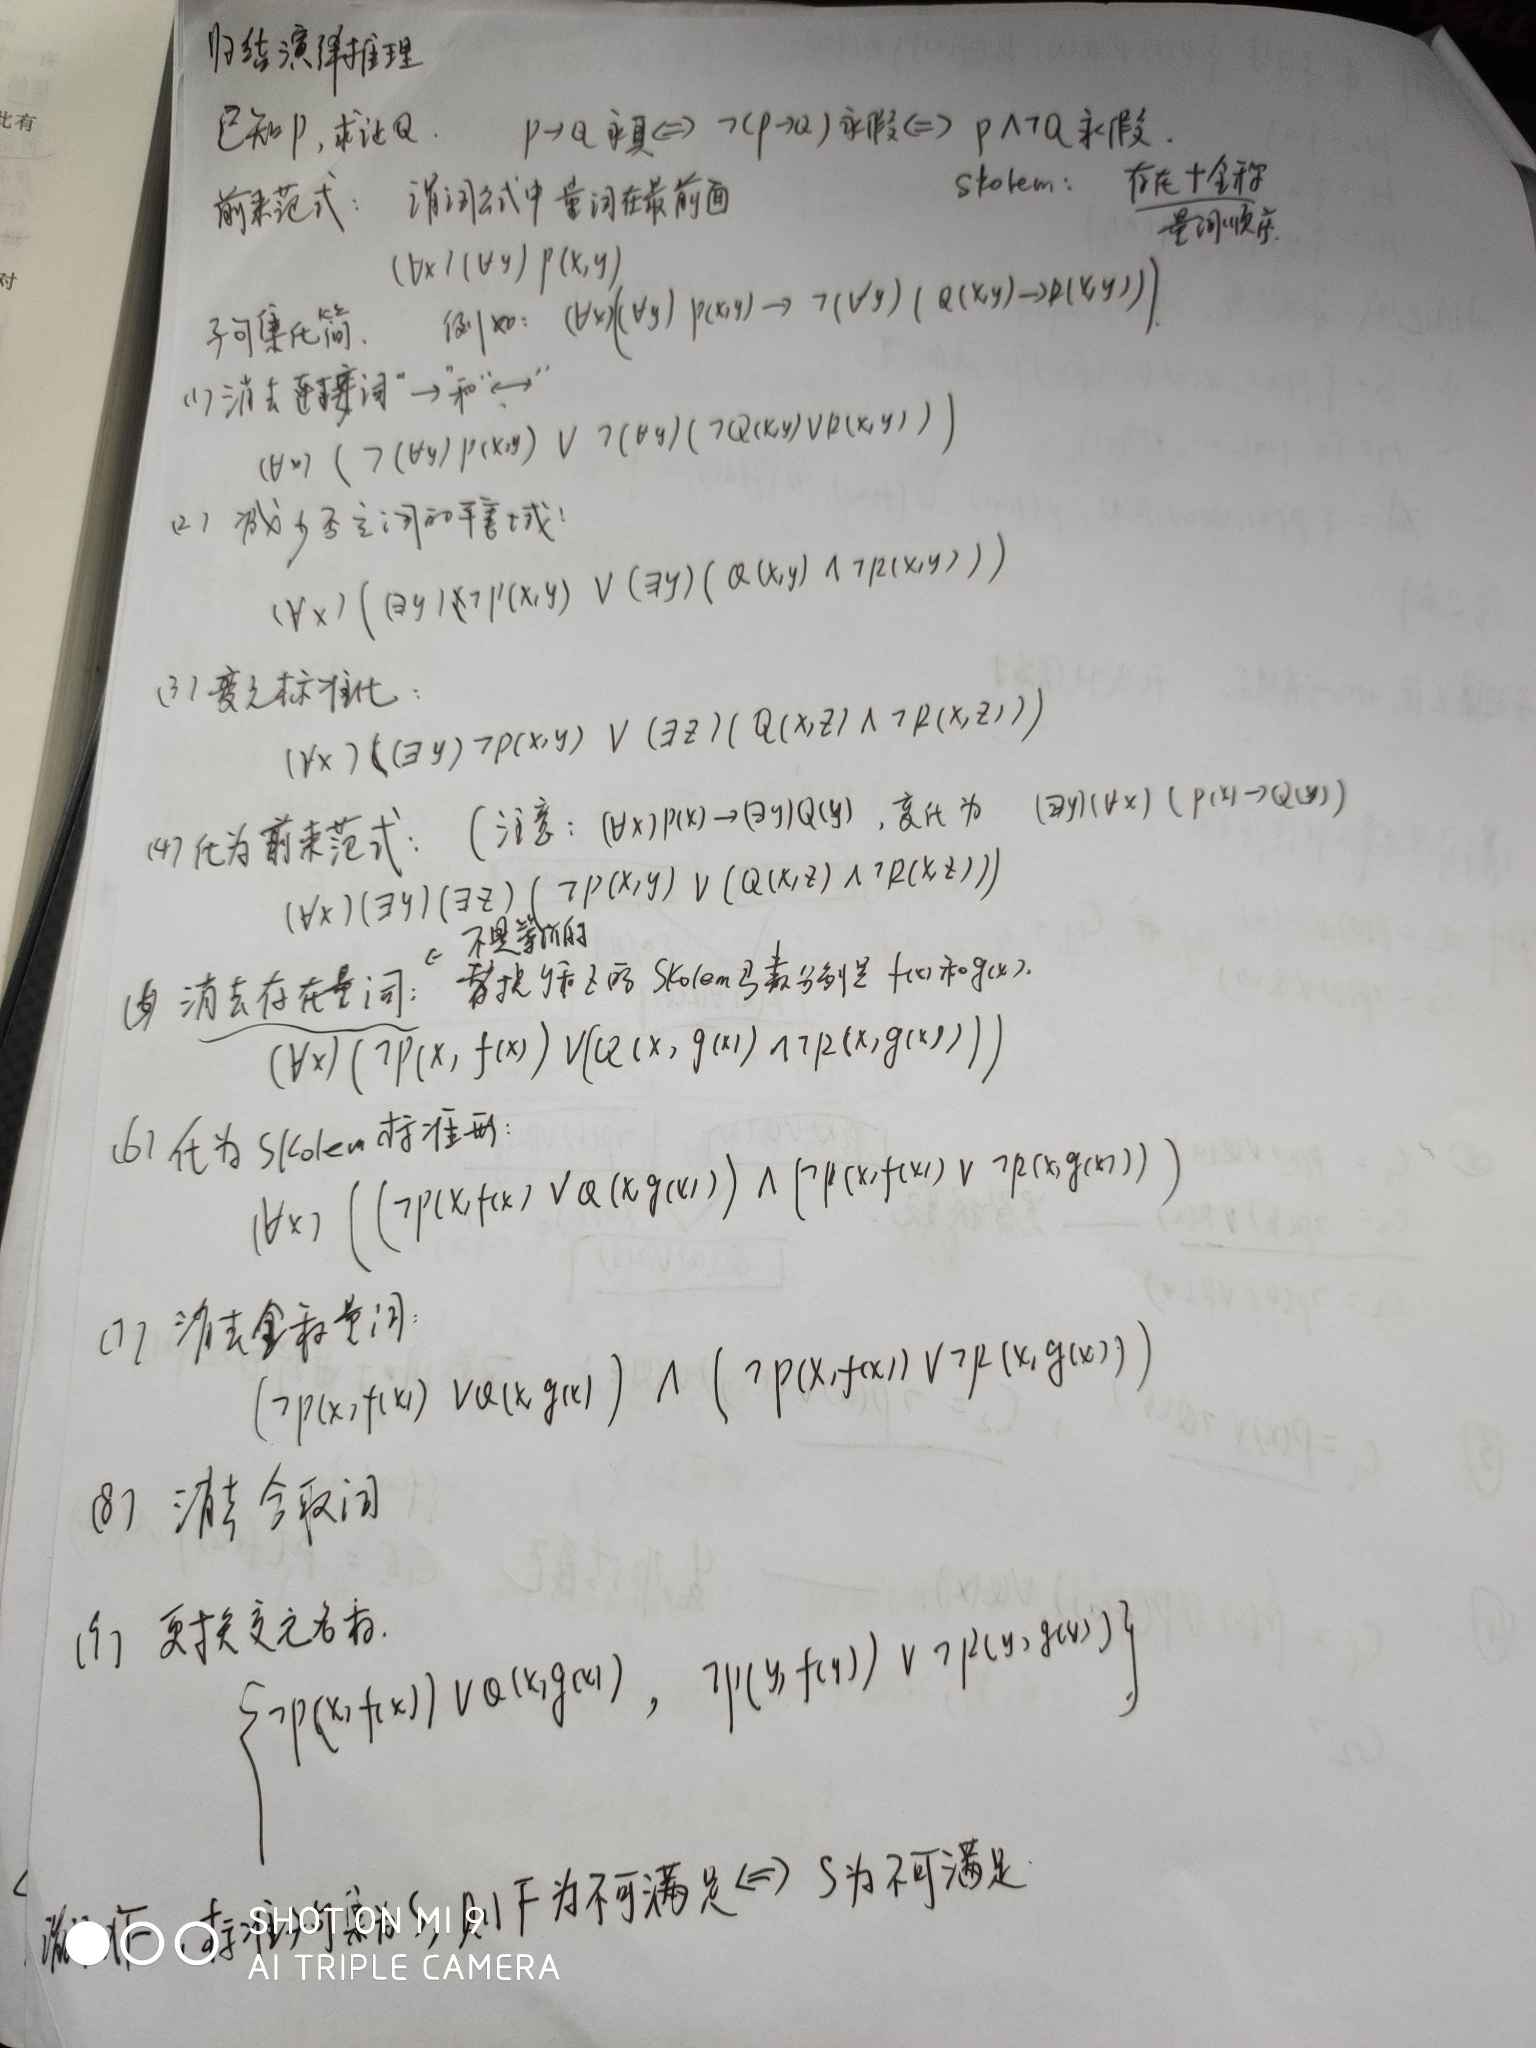 此有
对
归结演绎推理
已知P,求证Q. P→Q永真⇔¬(P→Q)永假⇔P∧¬Q永假.
前束范式: 谓词公式中量词在最前面
Skolem: 存在+全称
量词顺序.
(∀x)(∀y)P(x,y)
子句集化简. 例如: (∀x)((∀y)P(x,y)→¬(∀y)(Q(x,y)→R(x,y)))
(1)消去连接词"→"和"↔"
(∀x)(¬(∀y)P(x,y)∨¬(∀y)(¬Q(x,y)∨R(x,y)))
(2)减少否定词的辖域:
(∀x)((∃y)¬P(x,y)∨(∃y)(Q(x,y)∧¬R(x,y)))
(3)变元标准化:
(∀x)((∃y)¬P(x,y)∨(∃z)(Q(x,z)∧¬R(x,z)))
(4)化为前束范式:(注意:(∀x)P(x)→(∃y)Q(y),变化为 (∃y)(∀x)(P(x)→Q(y))
(∀x)(∃y)(∃z)(¬P(x,y)∨(Q(x,z)∧¬R(x,z)))
← 不是等价的
(5)消去存在量词: 替换y和z的Skolem函数分别是f(x)和g(x).
(∀x)(¬P(x,f(x))∨(Q(x,g(x))∧¬R(x,g(x))))
(6)化为Skolem标准形:
(∀x)((¬P(x,f(x)∨Q(x,g(x)))∧(¬P(x,f(x)∨¬R(x,g(x))))
(7)消去全称量词:
(¬P(x,f(x))∨Q(x,g(x))∧(¬P(x,f(x))∨¬R(x,g(x)))
(8)消去合取词
(9)更换变元名称.
{¬P(x,f(x))∨Q(x,g(x)),¬P(y,f(y))∨¬R(y,g(y))}
F,标准子句集为S,则F为不可满足⇔S为不可满足.
SHOT ON MI 9
AI TRIPLE CAMERA